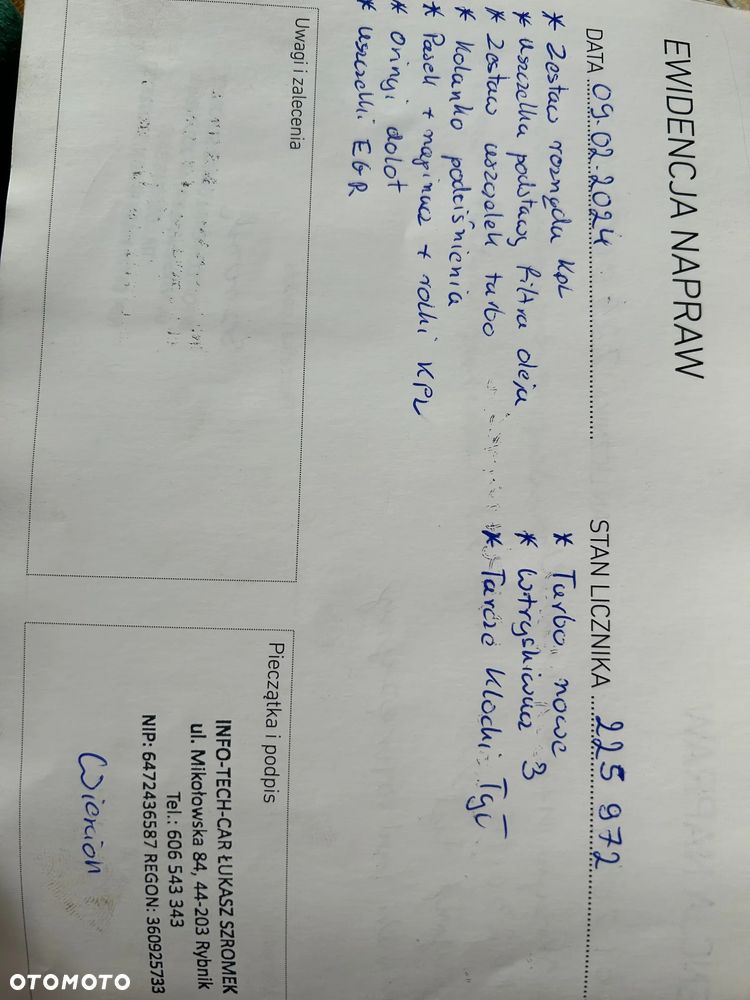 EWIDENCJA NAPRAW
DATA 09.02.2024
STAN LICZNIKA 225 972
* Zestaw rozrządu kpl
* uszczelka podstawy filtra oleju
* Zestaw uszczelek turbo
* Kolanko podciśnienia
* Pasek + napinacz + rolki KPL
* oringi dolot
* uszczelki EGR
* Turbo nowe
* wtryskiwacz 3
* Tarcze klocki Tył
Uwagi i zalecenia
Pieczątka i podpis
INFO-TECH-CAR ŁUKASZ SZROMEK
ul. Mikołowska 84, 44-203 Rybnik
Tel.: 606 543 343
NIP: 6472436587 REGON: 360925733
OTOMOTO